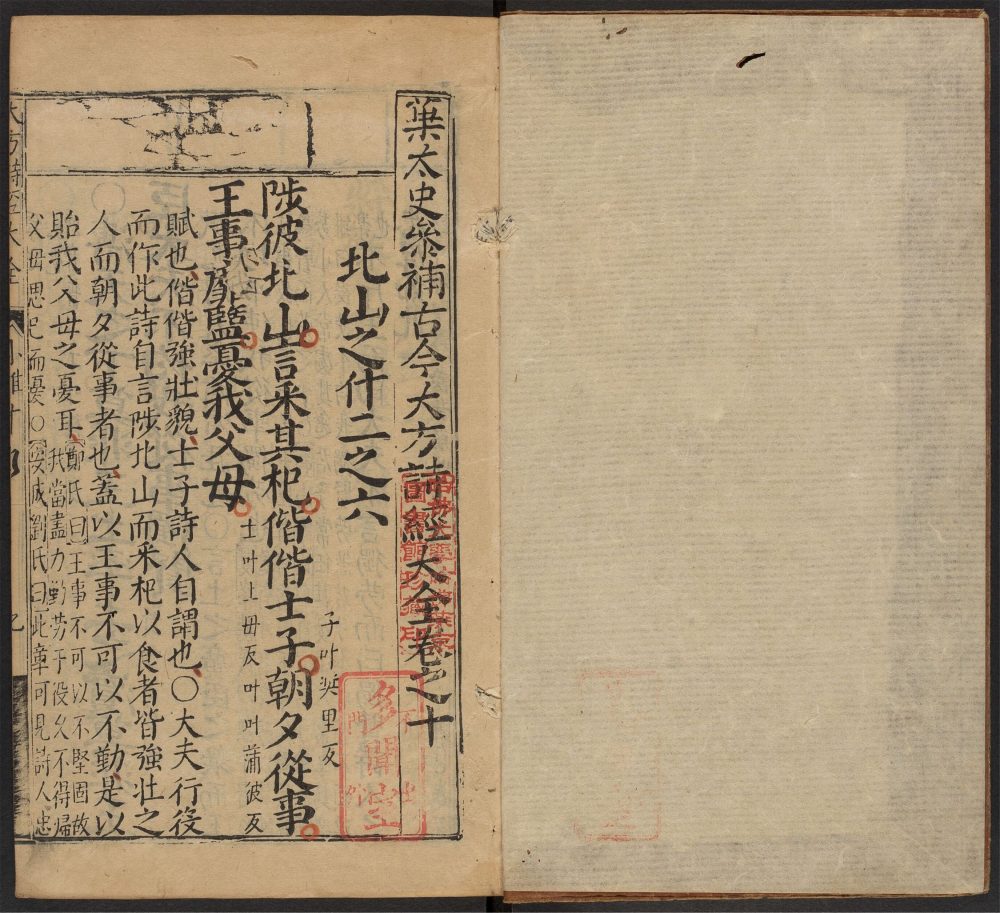 葉太史叅補古今大方詩經大全卷之十
北山之什二之六
陟彼北山言采其杞偕偕士子朝夕從事
子叶奬里反
王事靡盬憂我父母
士叶上 母反 叶 叶蒲彼反
賦也偕偕強壯貌士子詩人自謂也○大夫行役
而作此詩自言陟北山而采杞以食者皆強壯之
人而朝夕從事者也蓋以王事不可以不勤是以
貽我父母之憂耳
鄭氏曰王事不可以不堅固故
我當盡力勤勞于役久不得歸
父母思己而憂○安成劉氏曰此章可見詩人忠
多聞室